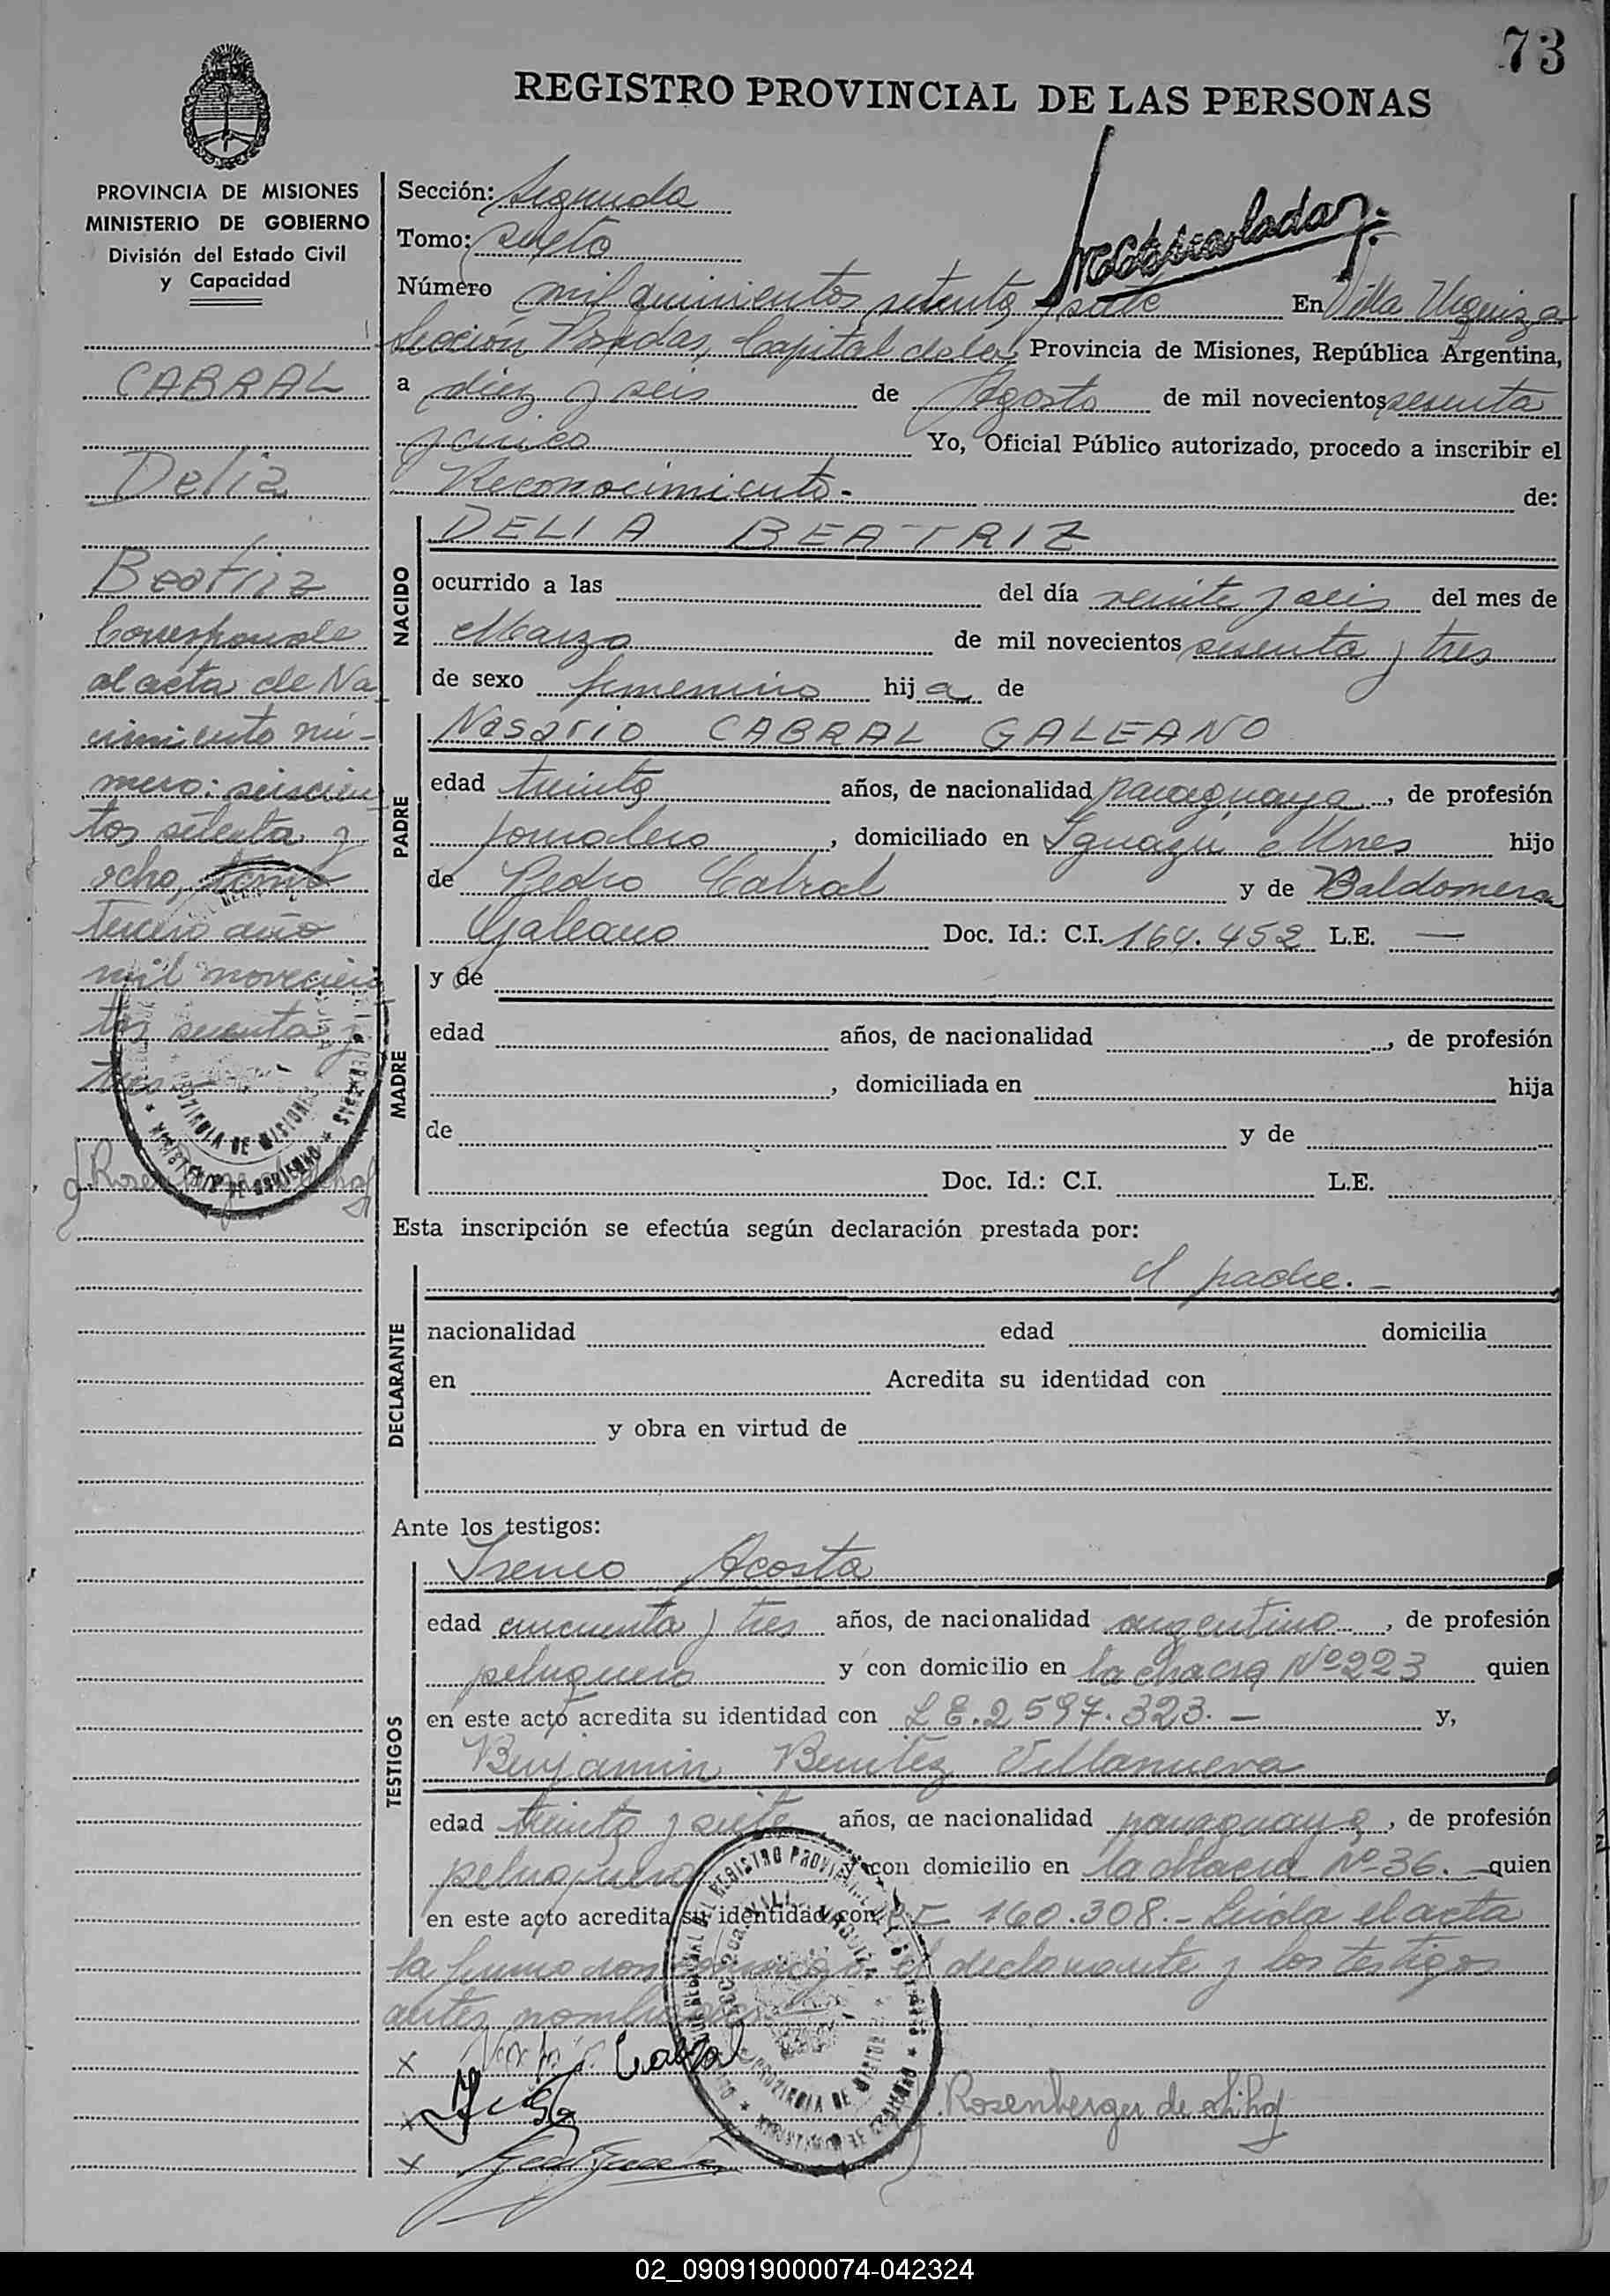 73
REGISTRO PROVINCIAL DE LAS PERSONAS
PROVINCIA DE MISIONES
MINISTERIO DE GOBIERNO
División del Estado Civil
y Capacidad
CABRAL
Delia
Beatriz
Corresponde
al acta de Na
cimiento nú-
mero: seiscien
tos setenta y
ocho, tomo
tercero año
mil novecien
tos sesenta y
tres
Sección: Segunda
Tomo: sexto
Número mil quinientos setenta y siete En Villa Urquiza
Sección Posadas, Capital de la Provincia de Misiones, República Argentina,
a diez y seis de Agosto de mil novecientos sesenta
y cinco Yo, Oficial Público autorizado, procedo a inscribir el
Reconocimiento.- de:
NACIDO
DELIA BEATRIZ
ocurrido a las del día veinte y seis del mes de
Marzo de mil novecientos sesenta y tres
de sexo femenino hija de
PADRE
Nasario CABRAL GALEANO
edad treinta años, de nacionalidad paraguaya, de profesión
jornalero, domiciliado en Iguazú Mnes hijo
de Pedro Cabral y de Baldomera
Galeano Doc. Id.: C.I. 164.452 L.E. —
MADRE
y de
edad años, de nacionalidad , de profesión
, domiciliada en hija
de y de
Doc. Id.: C.I. L.E.
Esta inscripción se efectúa según declaración prestada por:
DECLARANTE
el padre.-
nacionalidad edad domicilia
en Acredita su identidad con
y obra en virtud de
Ante los testigos:
TESTIGOS
Ireneo Acosta
edad cincuenta y tres años, de nacionalidad argentino, de profesión
peluquero y con domicilio en la chacra Nº 223 quien
en este acto acredita su identidad con L.E. 2597.323.- y,
Benjamin Benitez Villanueva
edad treinta y siete años, de nacionalidad paraguaya, de profesión
peluquero con domicilio en la chacra Nº 36. quien
en este acto acredita su identidad con 160.308.- Leída el acta
la firma conmigo el declarante y los testigos
antes nombrados
x Cabral
x
x
Rosenberger de
02_090919000074-042324